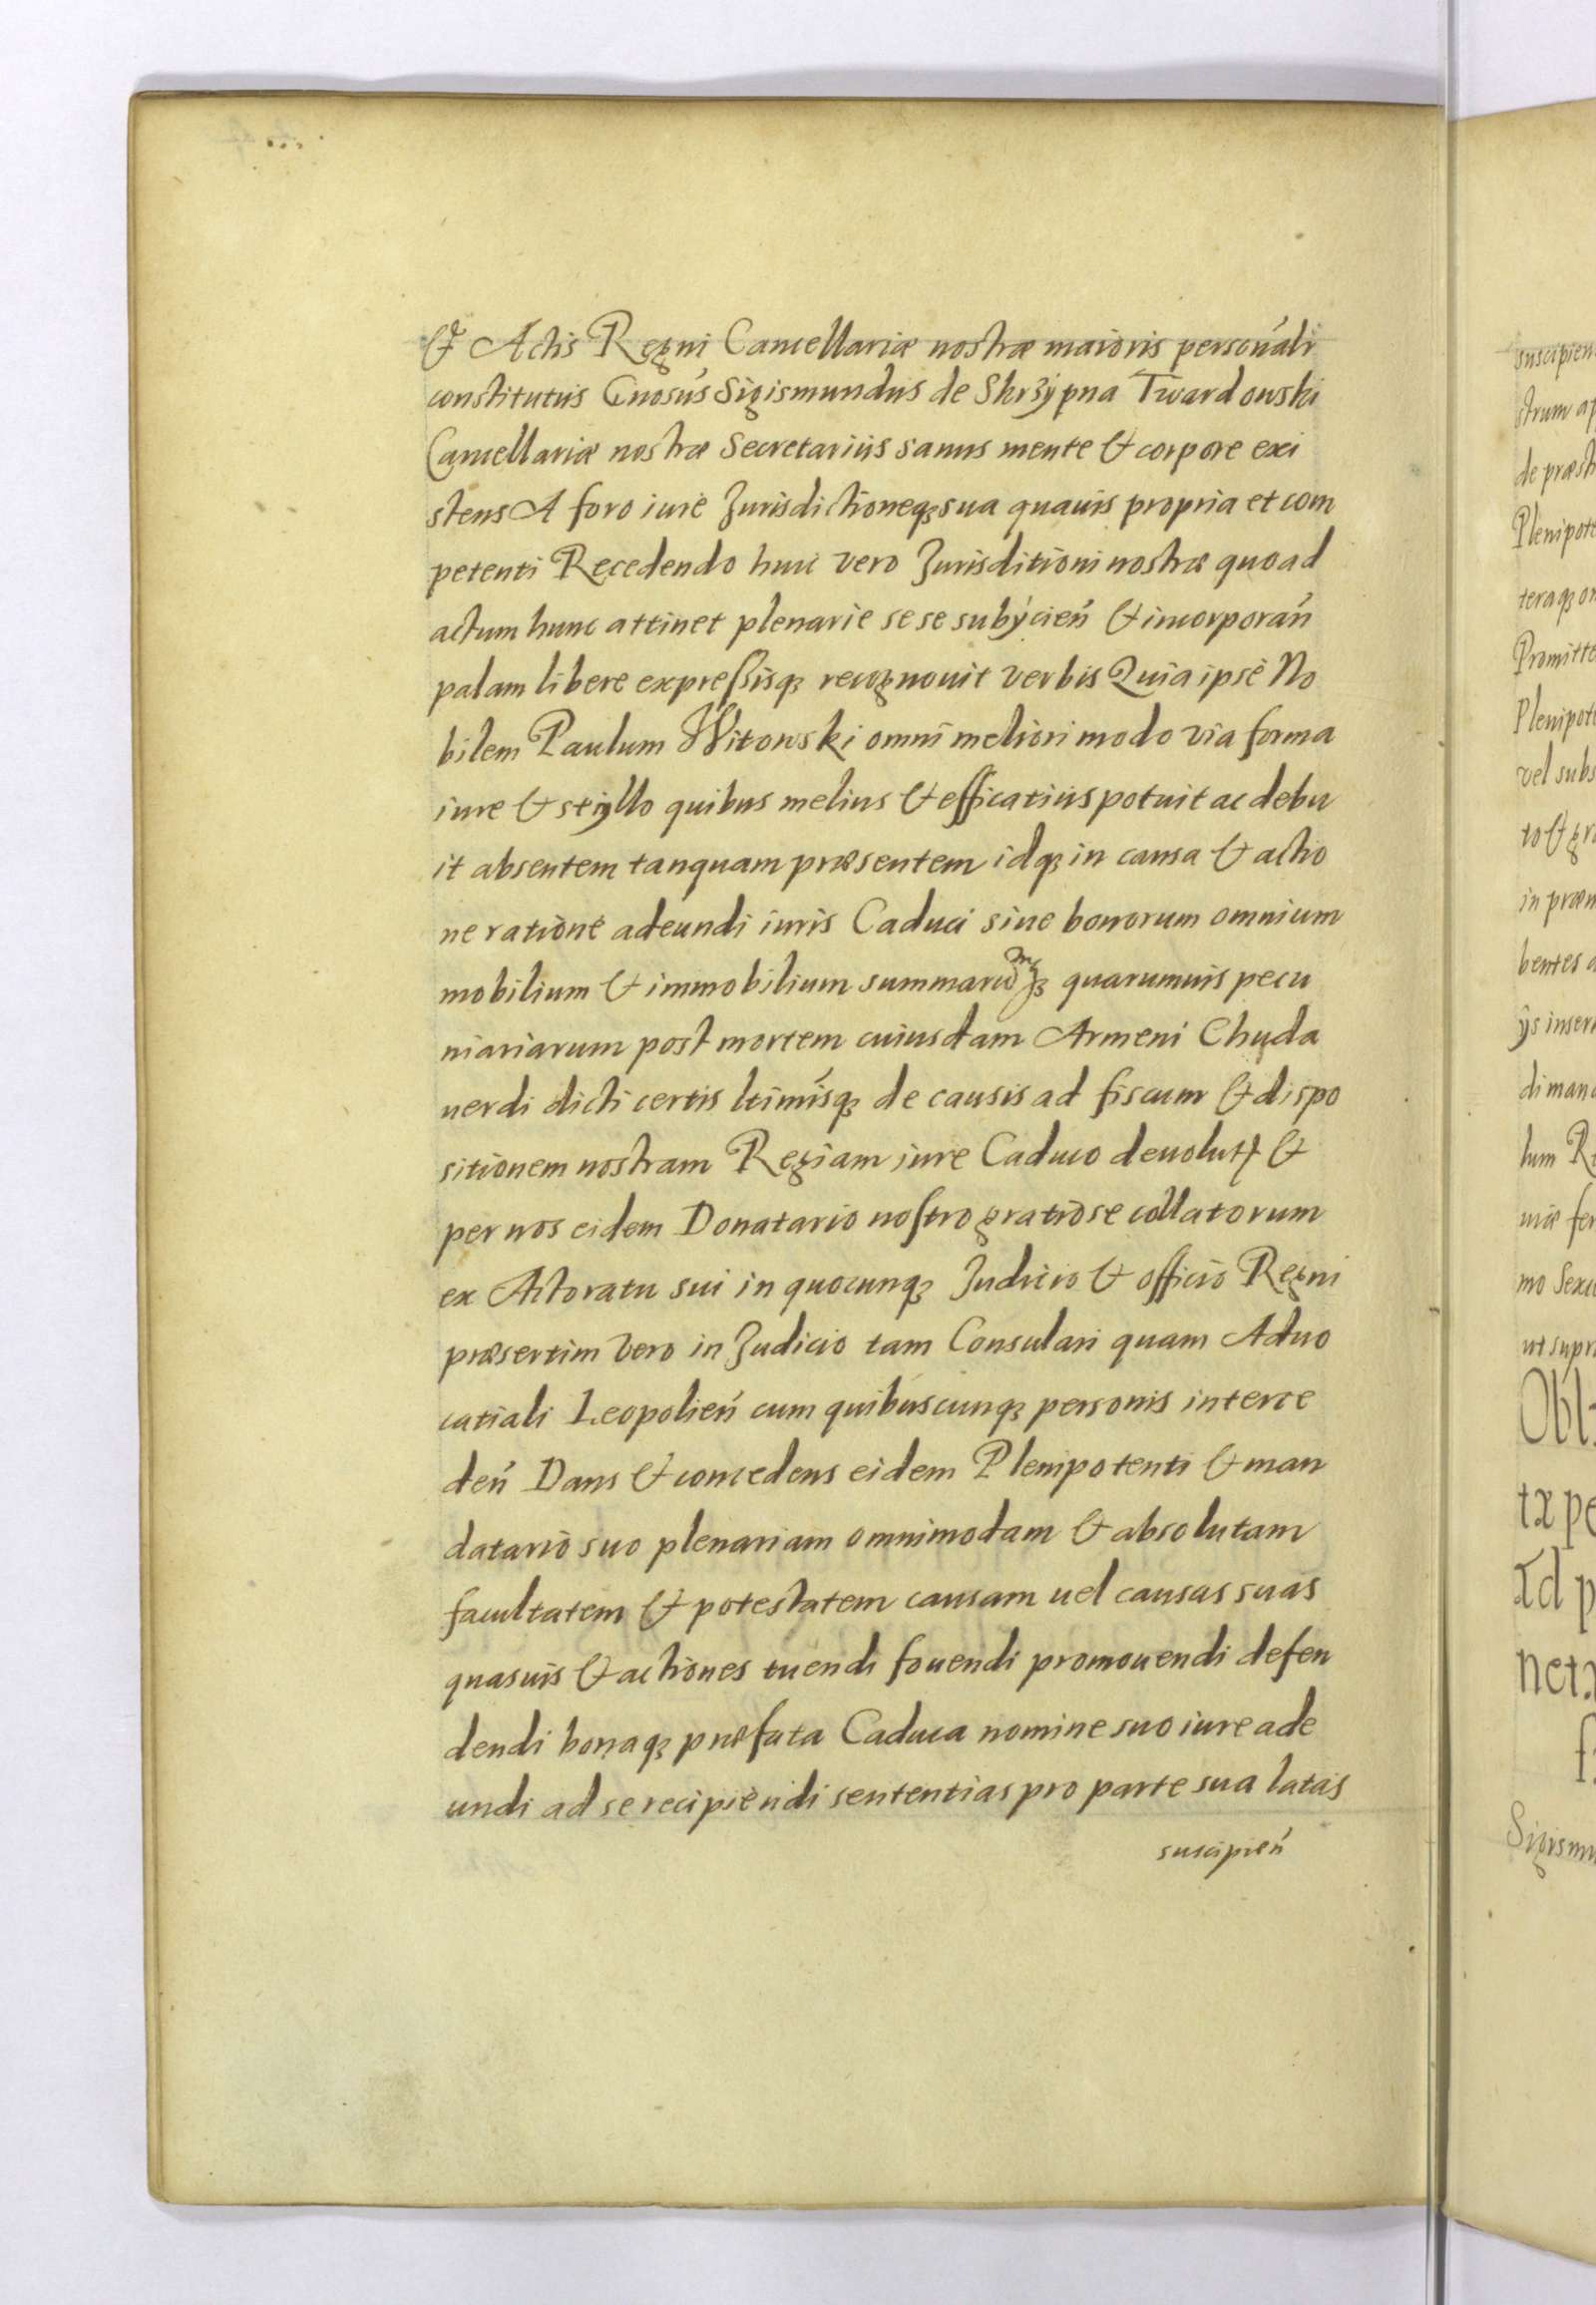 & Actis Regni Cancellariæ nostræ maioris personali
constitutus Gnosus Sigismundus de Skrzypna Twardowski
Cancellariæ nostræ Secretarius sanus mente & corpore exi
stens A foro iure Jurisdictioneq; sua quavis propria et com
petenti Recedendo huic vero Jurisditioni nostræ quoad
actum hunc attinet plenarie sese subÿcień & incorporań
palam libere expreſsisq; recognouit verbis Quia ipse No
bilem Paulum Witowski omni meliori modo via forma
iure & styllo quibus melius & efficatius potuit ac debu
it absentem tanquam præsentem idq; in causa & actio
ne ratione adeundi iuris Caduci siue bonorum omnium
mobilium & immobilium summarū q; quarumuis pecu
niariarum post mortem cuiusdam Armeni Chuda
uerdi dicti certis ltimisq; de causis ad fiscum & dispo
sitionem nostram Regiam iure Caduco deuolutꝝ &
per nos eidem Donatario noſtro gratiose collatorum
ex Actoratu sui in quocunq; Judicio & officio Regni
præsertim vero in Judicio tam Consulari quam Aduo
catiali Leopolień cum quibuscunq; personis interce
deń Dans & concedens eidem Plenipotenti & man
datario suo plenariam omnimodam & absolutam
facultatem & potestatem causam uel causas suas
quasuis & actiones tuendi fouendi promouendi defen
dendi bonaq; præfata Caduca nomine suo iure ade
undi ad se recipiendi sententias pro parte sua latas
suscipień